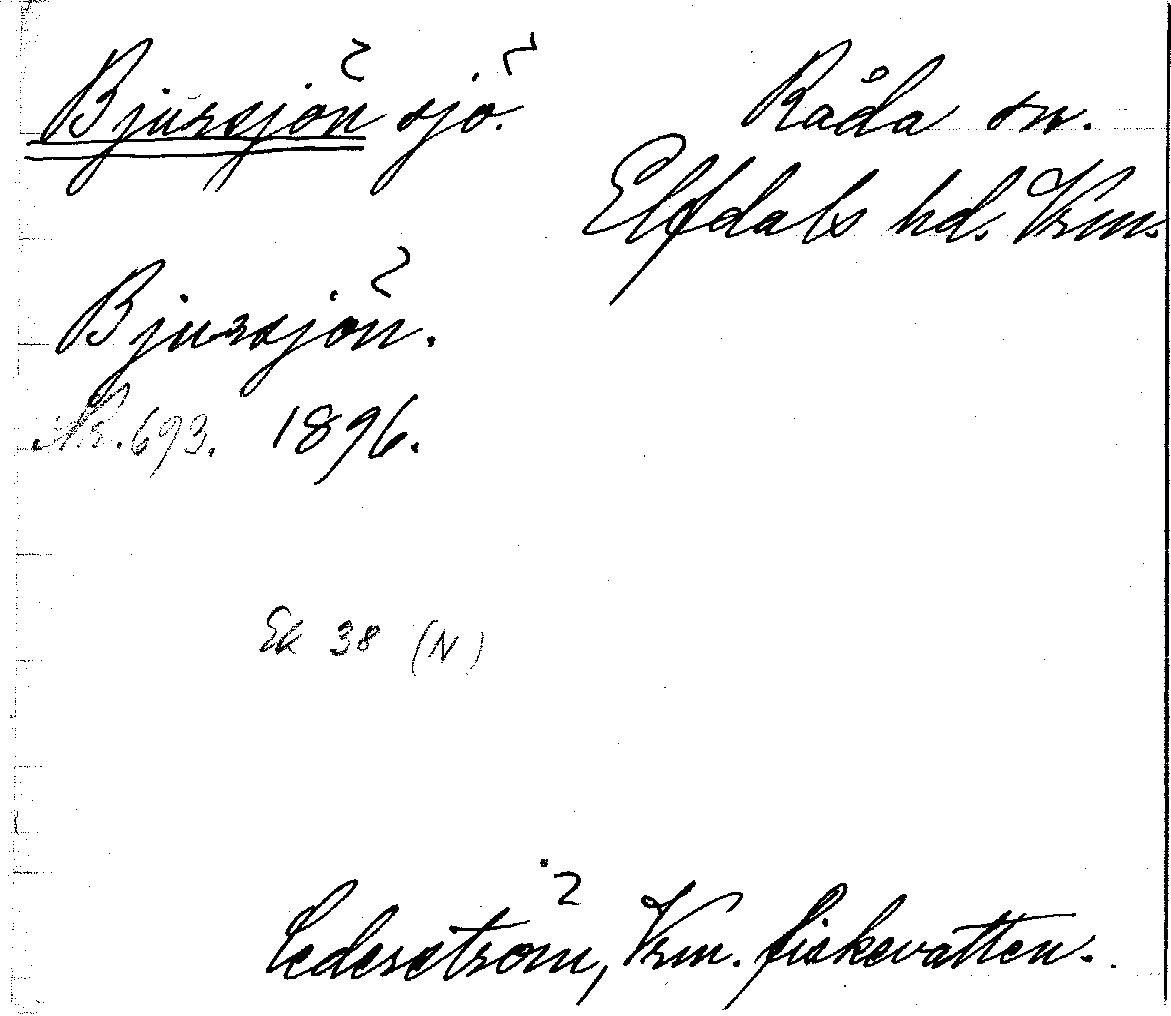 Bjursjön sjö. Råda sn.
Elfdals hd. Vrm.
Bjursjön.
Nr. 693. 1896.
Ek 38 (N)
Cederström, Vrm. fiskevatten.